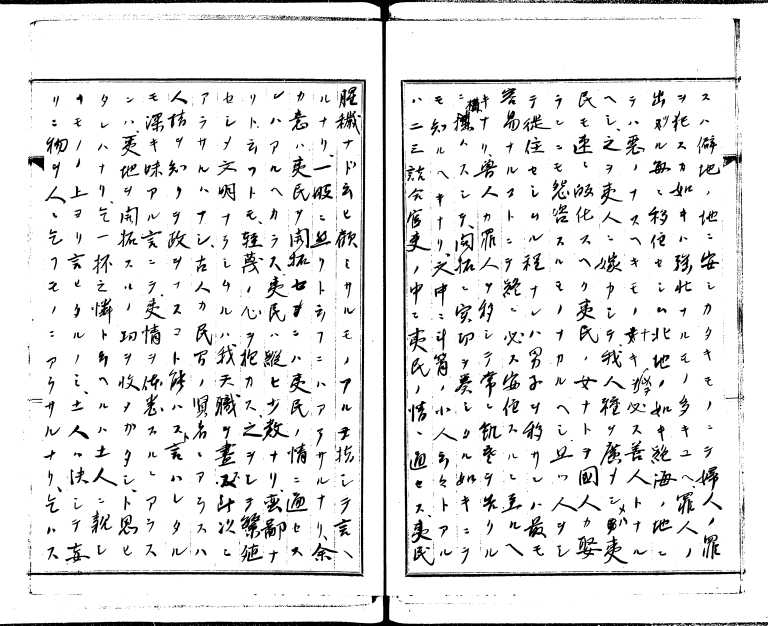 スハ僻地ノ地ニ安シカタキモノニシテ婦人ノ罪
ヲ犯スカ如キハ強壮ナルモノ多キユヘ罪人ノ
出ル毎ニ移住セシム北地ノ如キ絶海ノ地ニ
テハ悪ノナスヘキモノナキ必ス善人トナル
ヘシ之ヲ夷人ニ嫁カシテ我人種ヲ広メ夷
民モ速ニ帰化スヘク夷民ノ女ナトヲ国人カ娶
ランニモ怨咨スルモノナカルヘシ且ツ人ヲシ
テ従住セシムル程ナレハ男子ヲ移サレハ最モ
容易ナルストニテ終ニ必ス安住スルニ至ルヘ
キナリ兽人カ罪人ヲ移シテ常ニ飢寒ヲ失クル
ニ撲ハスシテ開拓ニ実功ヲ奏シタル如キニテ
モ知ルヘキナリ文中ニ斗筲ノ小人云々トアル
ハ二三詰合官吏ノ中ニ夷民ノ情ニ通セス夷民
腥穢ナド云ヒ顧ミサルモノアルヲ指シテ言ヘ
ルナリ一般ニ並リト云フニハアラサルナリ余
カ意ハ夷民ヲ開拓セサンニハ夷民ノ情ニ通セス
レハアルヘカラス夷民ハ縦ヒ少数ナリ蛮鄙ナ
リト云フトモ軽蔑ノ心ヲ抱カス之ヲシテ繁殖
セシメ文明ナラシムルハ我天職ヲ尽ス斗次ニ
アラサルハナシ古人カ民ノ賢名ニアラスハ
人情ヲ知クヲ政ヲナスコト能ハスト言ハレタル
モ深キ味アル言ニテ夷情ヲ体悉スルニアラス
ンハ夷地ヲ開拓スルノ功ヲ收メカタシト思ヒ
タレハナリ乞一杯之憐ト与ヘルハ土人ニ親シ
キモノノ上ヨリ言ヒタルノミ土人ハ決シテ妄
リニ物ヲ人ニ乞フモノニアラサルナリ乞ハス